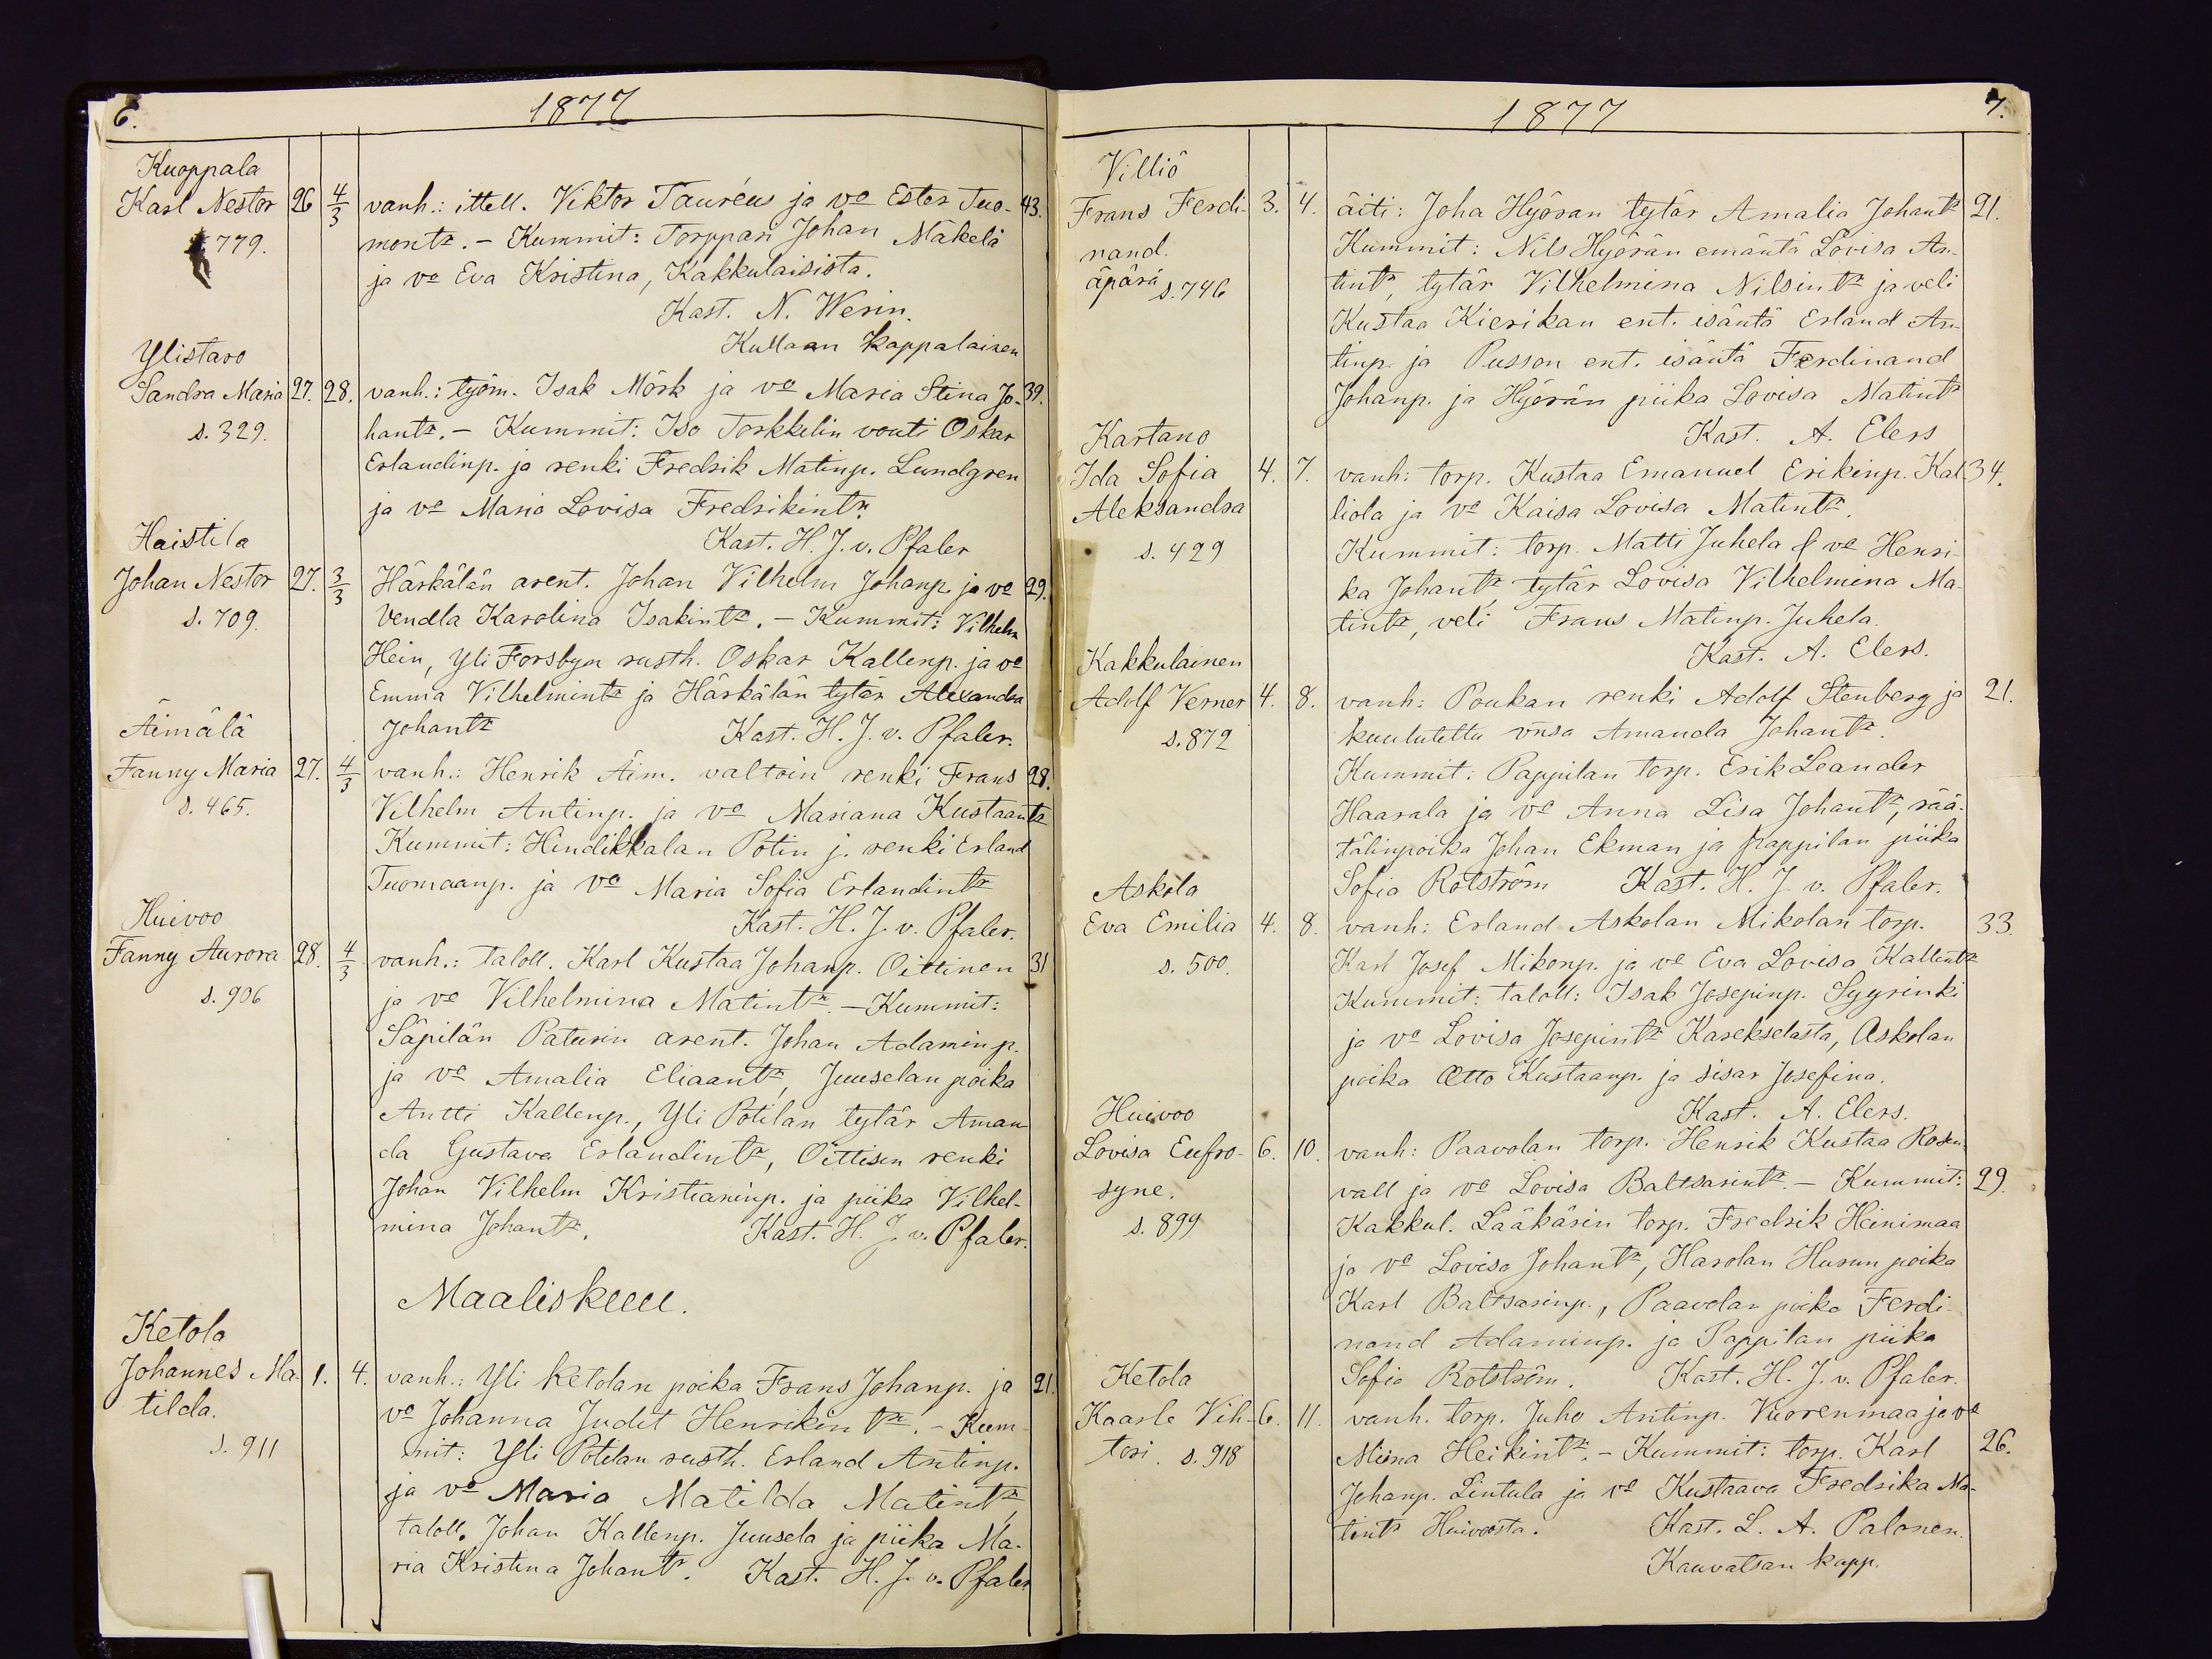 6.
1877
Kuoppala
Karl Nestor 26 4/3 vanh.: ittell. Viktor Tauréus ja vo Ester Tuo- 43.
779. montr. - Kummit: Torppari Johan Mäkelä
ja vo Eva Kristina, Kakkulaisista.
Kast. N. Werin.
Kullaan kappalainen
Ylistaro
Sandra Maria 27. 28. vanh.: työm. Isak Mörk ja vo Maria Stina Jo- 39.
s. 329. hantr. - Kummit: Iso Torkkelin vouti Oskar
Erlandinp. ja renki Fredrik Matinp. Lundgren
ja vo Maria Lovisa Fredrikintr.
Kast. H. J. v. Pfaler
Haistila
Johan Nestor 27. 3/3 Härkälän arent. Johan Vilhelm Johanp. ja vo 29.
s. 709. Vendla Karolina Isakintr. - Kummit: Vilhelm
Hein, Yli Forsbyn rusth. Oskar Kallenp. ja vo
Emma Vilhelmintr ja Härkälän tytär Alexandra
Johantr Kast. H. J. v. Pfaler.
Äimälä
Fanny Maria 27. 4/3 vanh.: Henrik Äim. valtoin renki Frans 28.
s. 465. Vilhelm Antinp. ja vo Mariana Kustaantr
Kummit: Hindikkalan Potin j. renki Erland
Tuomaanp. ja vo Maria Sofia Erlandintr
Kast. H. J. v. Pfaler.
Huivoo
Fanny Aurora 28. 4/3 vanh.: taloll. Karl Kustaa Johanp. Oittinen 31
s. 906 ja vo Vilhelmina Matintr. - Kummit:
Säpilän Paturin arent. Johan Adaminp.
ja vo Amalia Eliaantr, Juuselan poika
Antti Kallenp., Yli Potilan tytär Aman-
da Gustava Erlandintr, Oittisen renki
Johan Vilhelm Kristianinp. ja piika Vilhel-
mina Johantr. Kast. H. J. v. Pfaler.
Maaliskuu.
Ketola
Johannes Ma- 1. 4. vanh.: Yli Ketolan poika Frans Johanp. ja 21.
tilda. vo Johanna Judit Henrikintr. - Kum-
s. 911 mit: Yli Potilan rusth. Erland Antinp.
ja vo Maria Matilda Matintr,
taloll. Johan Kallenp. Juusela ja piika Ma-
ria Kristina Johantr. Kast. H. J. v. Pfaler
1877
7.
Villiö
Frans Ferdi- 3. 4. äiti: Joha Hyörän tytär Amalia Johantr 21.
nand. Kummit: Nils Hyörän emäntä Lovisa An-
äpärä s. 746 tintr, tytär Vilhelmina Nilsintr ja veli
Kustaa Kierikan ent. isäntä Erland An-
tinp. ja Pusson ent. isäntä Ferdinand
Johanp. ja Hyörän piika Lovisa Matintr
Kast. A. Elers
Kartano
Ida Sofia 4. 7. vanh: torp. Kustaa Emanuel Erikinp. Kal- 34.
Aleksandra liola ja vo Kaisa Lovisa Matintr.
s. 429 Kummit: torp. Matti Juhela & vo Henri-
ka Johantr, tytär Lovisa Vilhelmina Ma-
tintr, veli Frans Matinp. Juhela.
Kast. A. Elers.
Kakkulainen
Adolf Verner 4. 8. vanh: Poukan renki Adolf Stenberg ja 21.
s. 872 kuulutettu vnsa Amanda Johantr.
Kummit: Pappilan torp. Erik Leander
Haarala ja vo Anna Lisa Johantr, rää-
tälinpoika Johan Ekman ja pappilan piika
Sofia Rotström Kast. H. J. v. Pfaler.
Askola
Eva Emilia 4. 8. vanh: Erland Askolan Mikolan torp. 33.
s. 500. Karl Josef Mikonp. ja vo Eva Lovisa Kallentr
Kummit: taloll: Isak Josepinp. Syyrinki
ja vo Lovisa Josepintr Kasekselasta, Askolan
poika Otto Kustaanp. ja sisar Josefina.
Kast. A. Elers.
Huivoo
Lovisa Eufro- 6. 10. vanh: Paavolan torp. Henrik Kustaa Rosen-
syne. vall ja vo Lovisa Baltsarintr. - Kummit: 29.
s. 899 Kakkul. Lääkärin torp. Fredrik Heinimaa
ja vo Lovisa Johantr, Harolan Husun poika
Karl Baltsarinp., Paavolan poika Ferdi-
nand Adaminp. ja Pappilan piika
Sofia Rotström. Kast. H. J. v. Pfaler.
Ketola
Kaarle Vih- 6. 11. vanh. torp. Juho Antinp. Vuorenmaa ja vo
tori. s. 918 Miina Heikintr. - Kummit: torp. Karl 26.
Johanp. Lintula ja vo Kustaava Fredrika Ma-
tintr Huivoosta. Kast. L. A. Palonen.
Kauvatsan kapp.